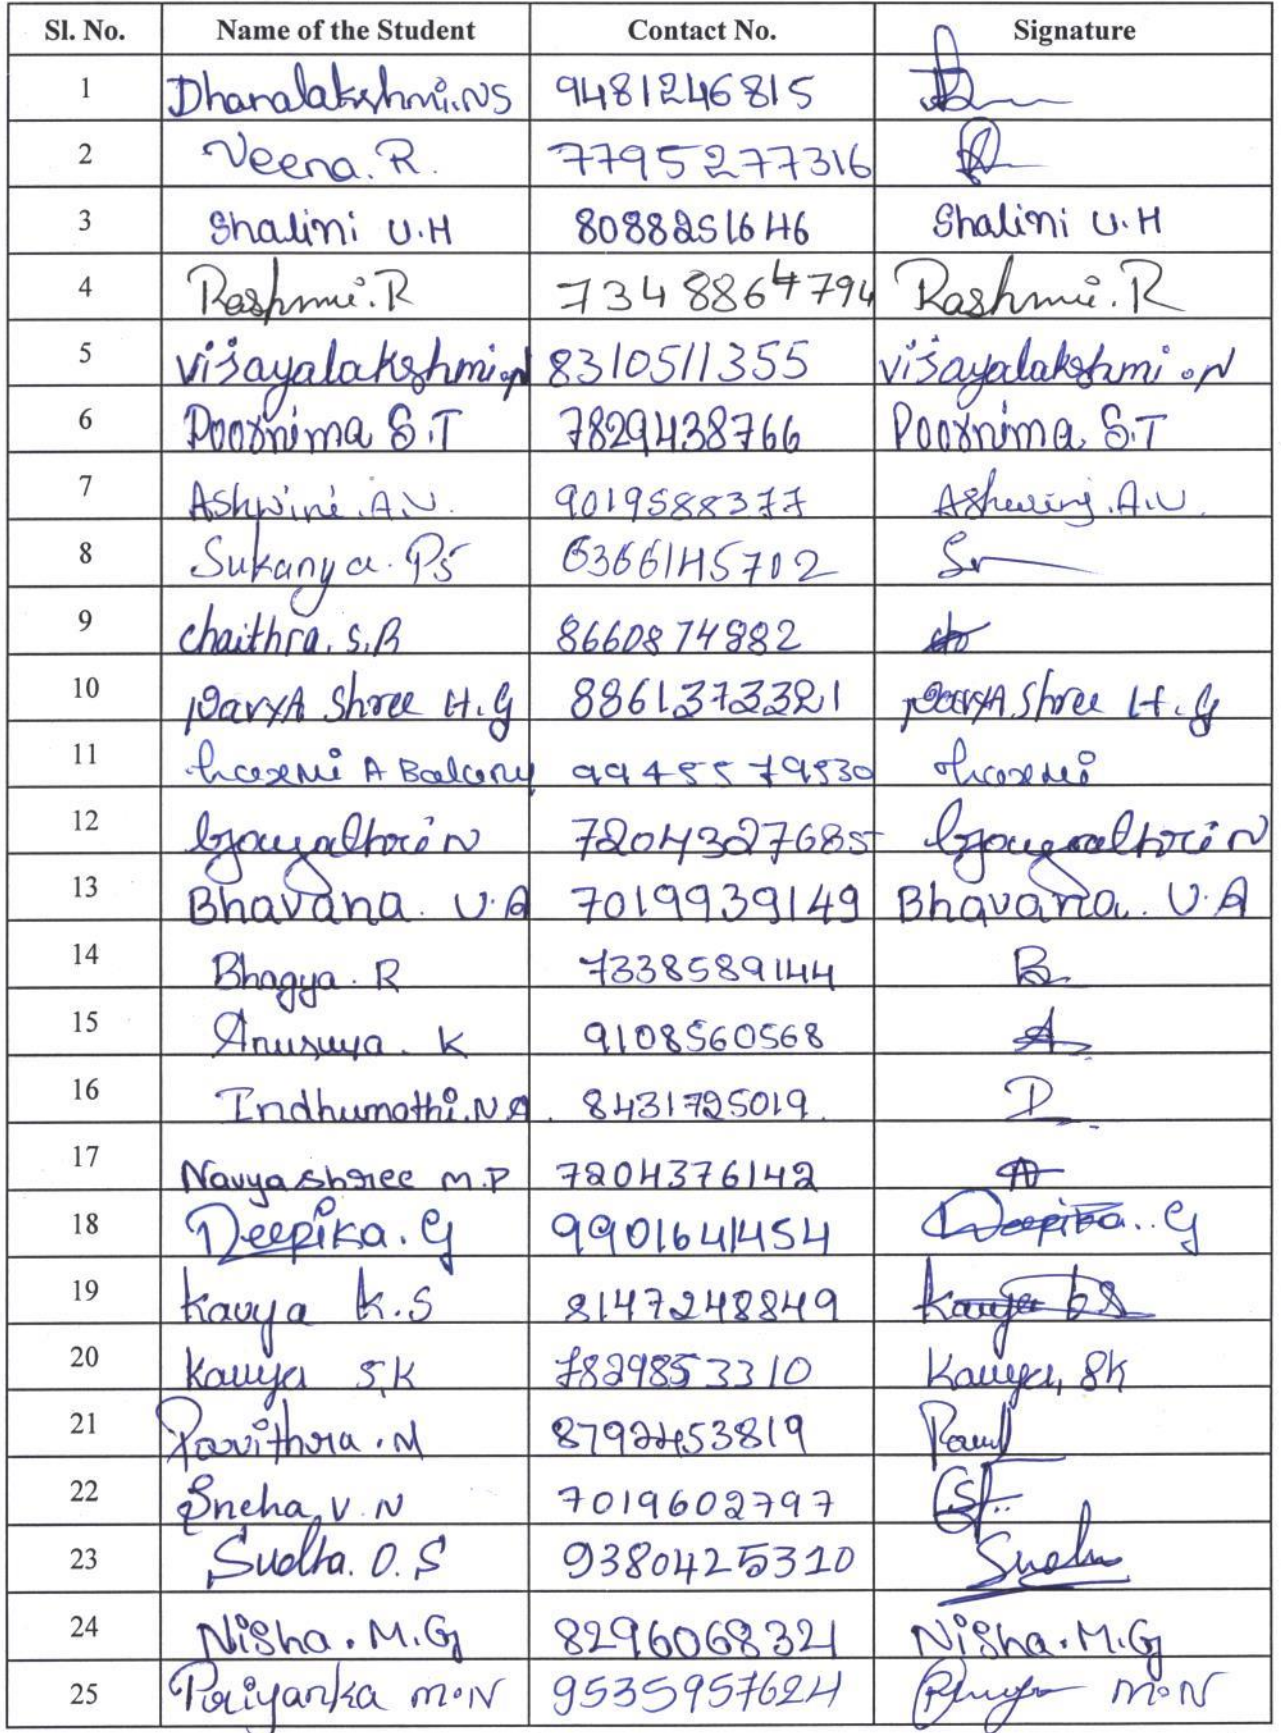 Sl. No. Name of the Student Contact No. Signature
1 Dhanalakshmi.NS 9481246815
2 Veena. R. 7795277316
3 Shalini U.H 8088251646 Shalini U.H
4 Rashmi.R 7348864794 Rashmi.R
5 Vijayalakshmi.N 8310511355 Vijayalakshmi.N
6 Poornima S.T 7829438766 Poornima S.T
7 Ashwini.A.V. 9019588377 Ashwini.A.V.
8 Sukanya. PS 6366145702
9 Chaithra. S.R 8660874982
10 Shree H.G 8861373321 Shree H.G
11 A 9945579530
12 7204327685
13 Bhavana. U.A 7019939149 Bhavana. U.A
14 Bhagya. R 7338589144 B
15 Anusuya. K 9108560568 A
16 Indhumathi.N.A. 8431725019. D
17 Navyashree M.P 7204376142 A
18 Deepika. G 9901641454 Deepika.. G
19 Kavya K.S 8147248849 Kavya KS
20 Kavya S.K 7829853310 Kavya, SK
21 Pavithra.M
22 Sneha V.N 7019602797
23 Sudha. O.S 9380425310 Sudha
24 Nisha.M.G 8296068321 Nisha.M.G
25 Priyanka M.N 9535957624 M.N